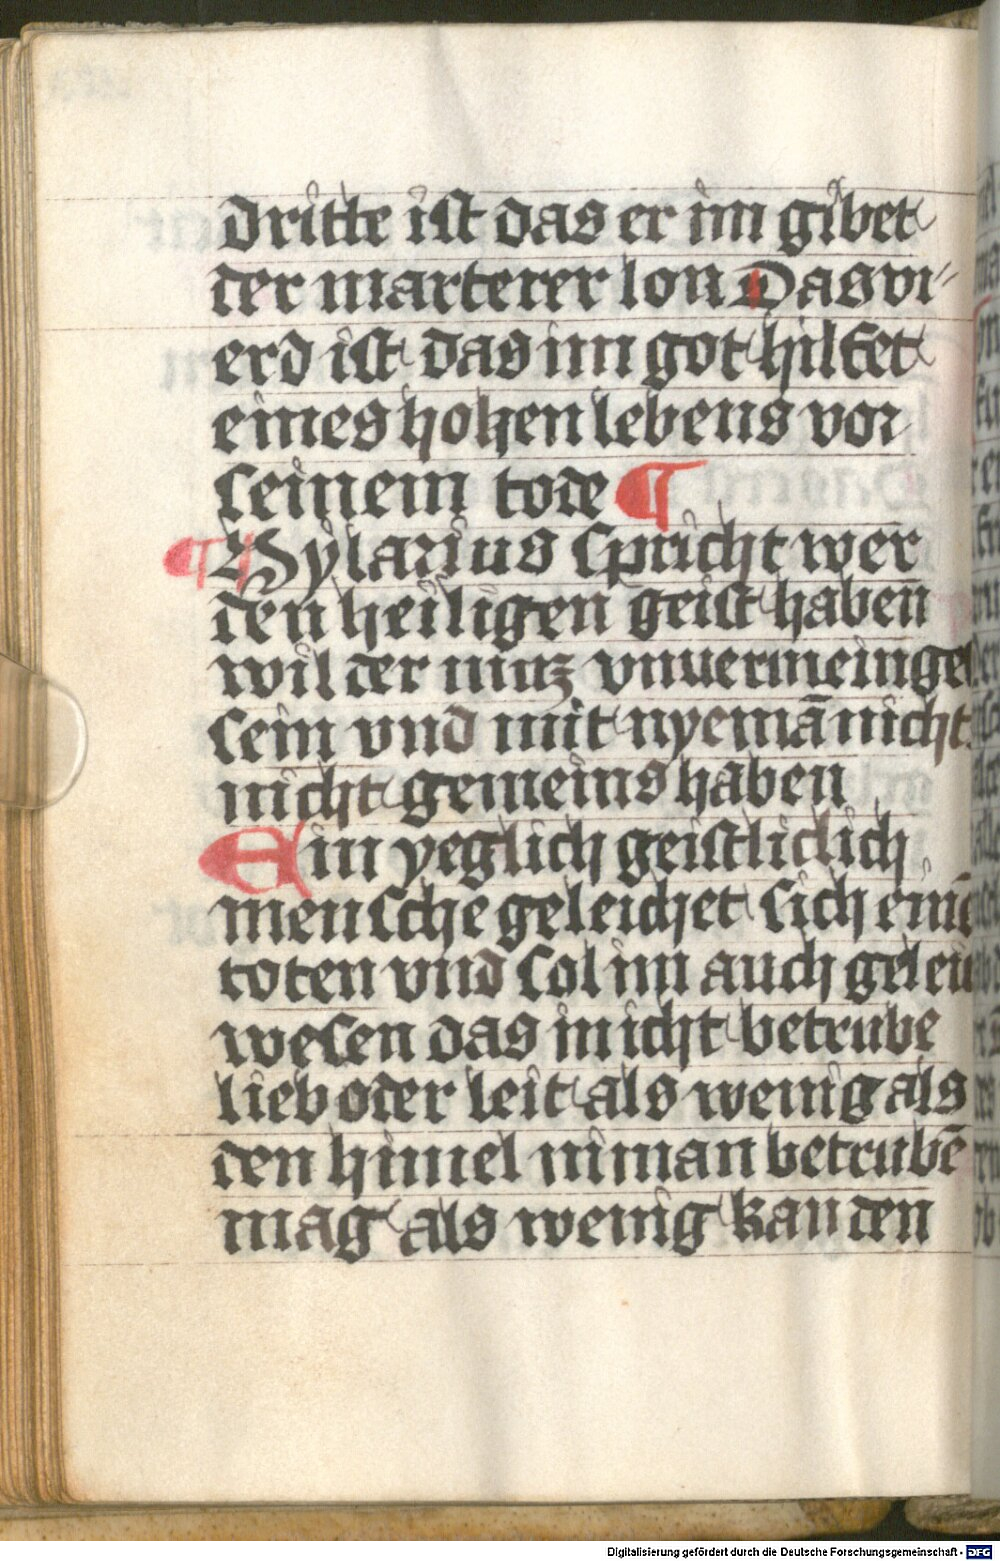 dritte ist das er im gibet
der marterer lon Das vi-
erd ist das im got hilfet
eines hohen lebens vor
seinem tode ¶
¶ Hylarius spricht wer
den heiligen geist haben
wil der muz vnuermeinget
sein vnd mit nyemā nicht
nicht gemeins haben
Ein yeglich geistliclich
mensche geleichet sich einē
toten vnd sol im auch gelei
wesen das in nicht betrube
lieb oder leit als wenig als
den himel niman betrubē
mag als wenig kan den
Digitalisierung gefördert durch die Deutsche Forschungsgemeinschaft - DFG